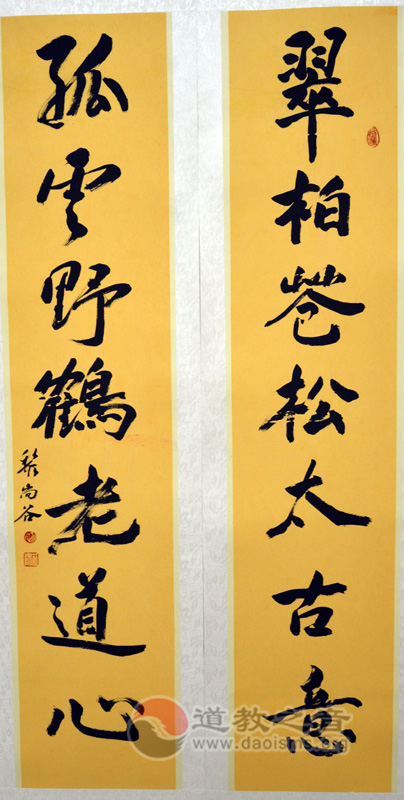 翠柏苍松太古意
孤云野鶴老道心
尚谷
道教之音
www.daoisms.org